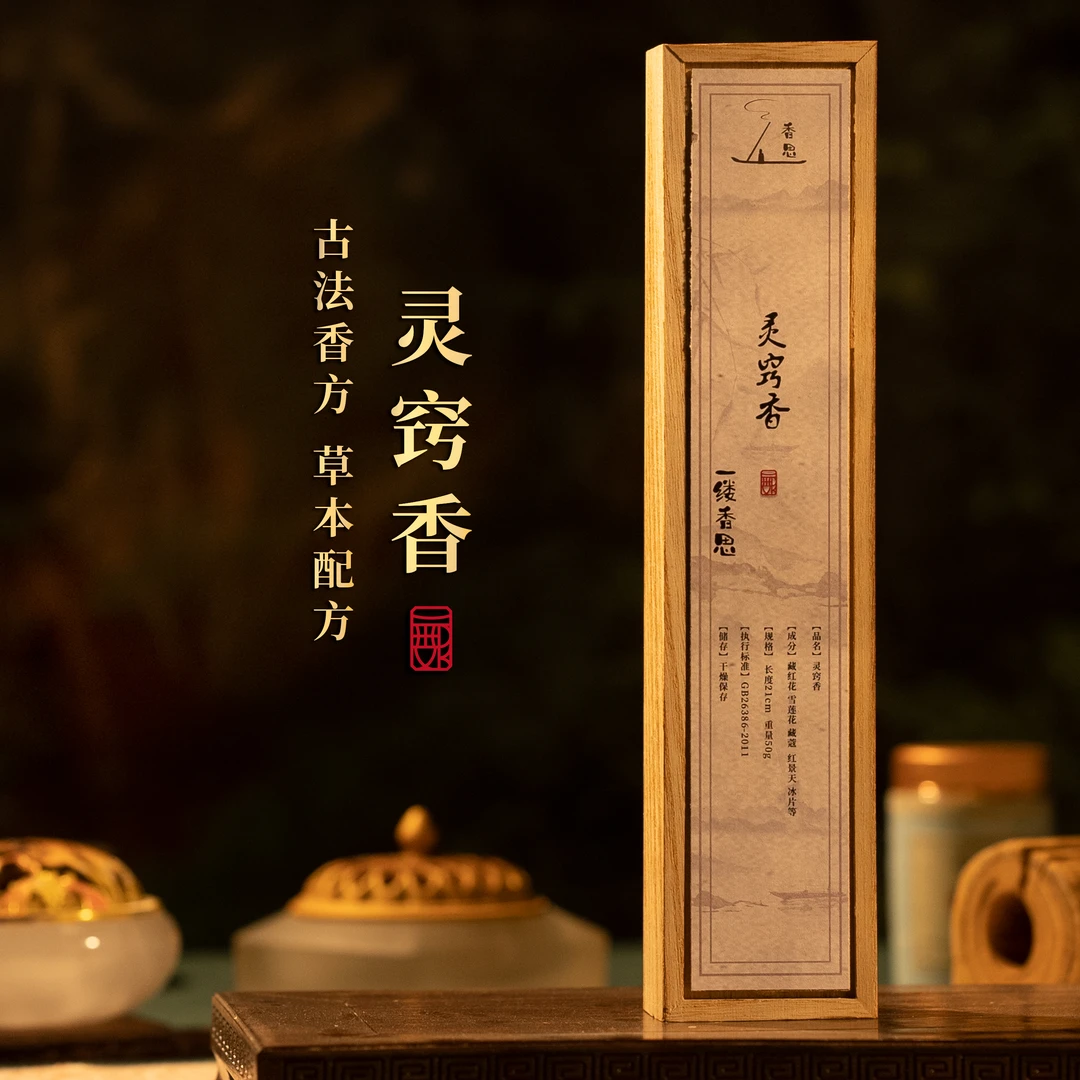 灵窍香
古法香方 草本配方
香思
灵窍香
一缕香思
【品名】灵窍香
【成分】藏红花 雪莲花 藏蔻 红景天 冰片等
【规格】长度21cm 重量50g
【执行标准】GB26386-2011
【储存】干燥保存